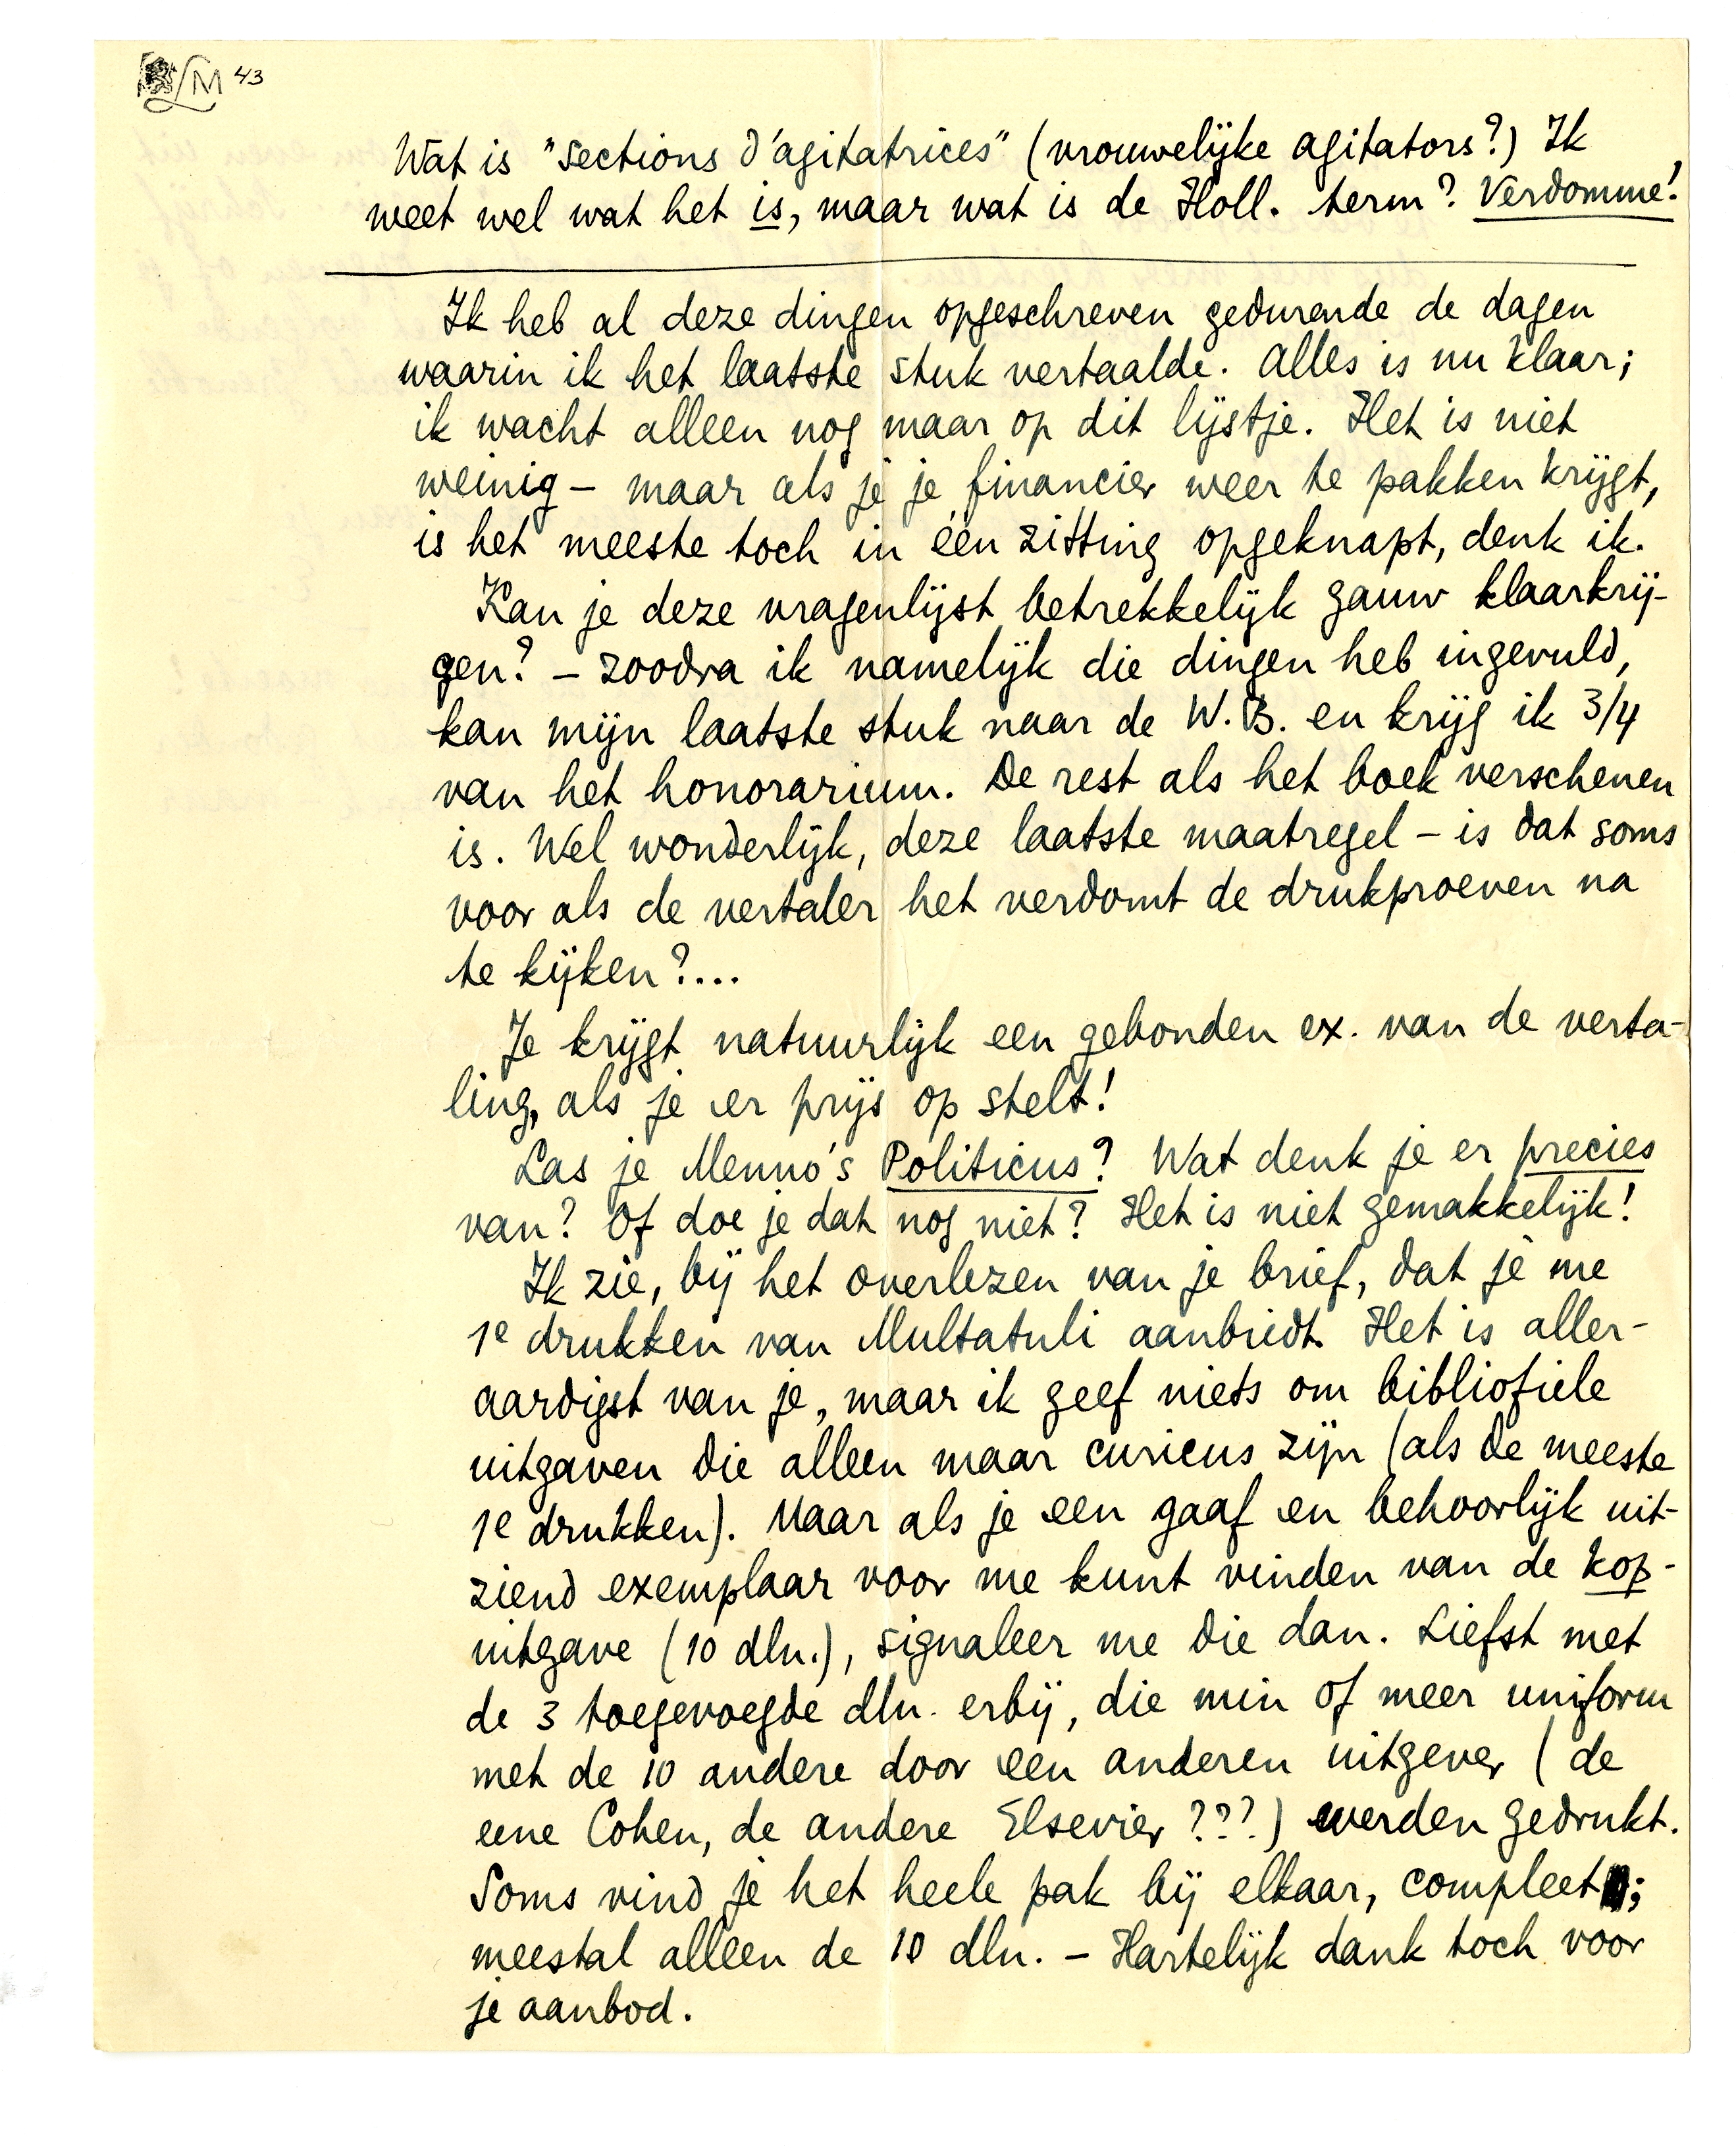 LM 43
Wat is "sections d'agitatrices" (vrouwelijke agitators?) Ik
weet wel wat het is, maar wat is de Holl. term? Verdomme!
Ik heb al deze dingen opgeschreven gedurende de dagen
waarin ik het laatste stuk vertaalde. Alles is nu klaar;
ik wacht alleen nog maar op dit lijstje. Het is niet
weinig – maar als je je financier weer te pakken krijgt,
is het meeste toch in één zitting opgeknapt, denk ik.
Kan je deze vragenlijst betrekkelijk gauw klaarkrij-
gen? – zoodra ik namelijk die dingen heb ingevuld,
kan mijn laatste stuk naar de W.B. en krijg ik 3/4
van het honorarium. De rest als het boek verschenen
is. Wel wonderlijk, deze laatste maatregel – is dat soms
voor als de vertaler het verdomt de drukproeven na
te kijken?...
Je krijgt natuurlijk een gebonden ex. van de verta-
ling, als je er prijs op stelt!
Las je Menno's Politicus? Wat denk je er precies
van? Of doe je dat nog niet? Het is niet gemakkelijk!
Ik zie, bij het overlezen van je brief, dat je me
1e drukken van Multatuli aanbiedt. Het is aller-
aardigst van je, maar ik geef niets om bibliofiele
uitgaven die alleen maar curieus zijn (als de meeste
1e drukken). Maar als je een gaaf en behoorlijk uit-
ziend exemplaar voor me kunt vinden van de kop-
uitgave (10 dln.), signaleer me die dan. Liefst met
de 3 toegevoegde dln. erbij, die min of meer uniform
met de 10 andere door een anderen uitgever (de
eene Cohen, de andere Elsevier???) werden gedrukt.
Soms vind je het heele pak bij elkaar, compleet;
meestal alleen de 10 dln. – Hartelijk dank toch voor
je aanbod.